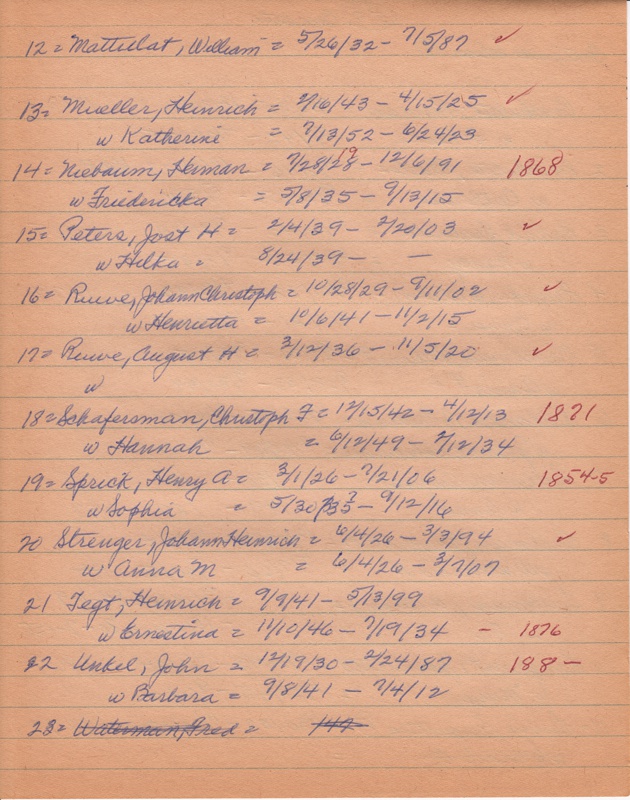 12 = Mattulat, William = 5/26/32 - 7/5/87 ✓
13 = Mueller, Heinrich = 2/16/43 - 4/15/25 ✓
w Katherine = 7/13/52 - 6/24/23
14 = Niebaum, Herman = 7/28/28 - 12/6/91 1868
19
w Friedericka = 5/8/35 - 9/13/15
15 = Peters, Jost H = 2/4/39 - 2/20/03 ✓
w Hilka = 8/24/39 - -
16 = Ruwe, Johann Christoph = 10/28/29 - 9/11/02 ✓
w Henrietta = 10/6/41 - 11/2/15
17 = Ruwe, August H = 3/12/36 - 11/5/20 ✓
w
18 = Schafersman, Christoph F = 12/15/42 - 4/12/13 1871
w Hannah = 6/12/49 - 2/12/34
19 = Sprick, Henry A = 3/1/26 - 7/21/06 1854-5
w Sophia = 5/30/35 - 9/12/16
20 Strenger, Johann Heinrich = 6/4/26 - 3/3/94 ✓
w Anna M = 6/4/26 - 3/7/07
21 Tegt, Heinrich = 9/9/41 - 5/13/99
w Ernestina = 11/10/46 - 7/19/34 - 1876
22 Unkel, John = 12/19/30 - 2/24/87 188-
w Barbara = 9/8/41 - 7/4/12
23 = Waterman, Fred = 147